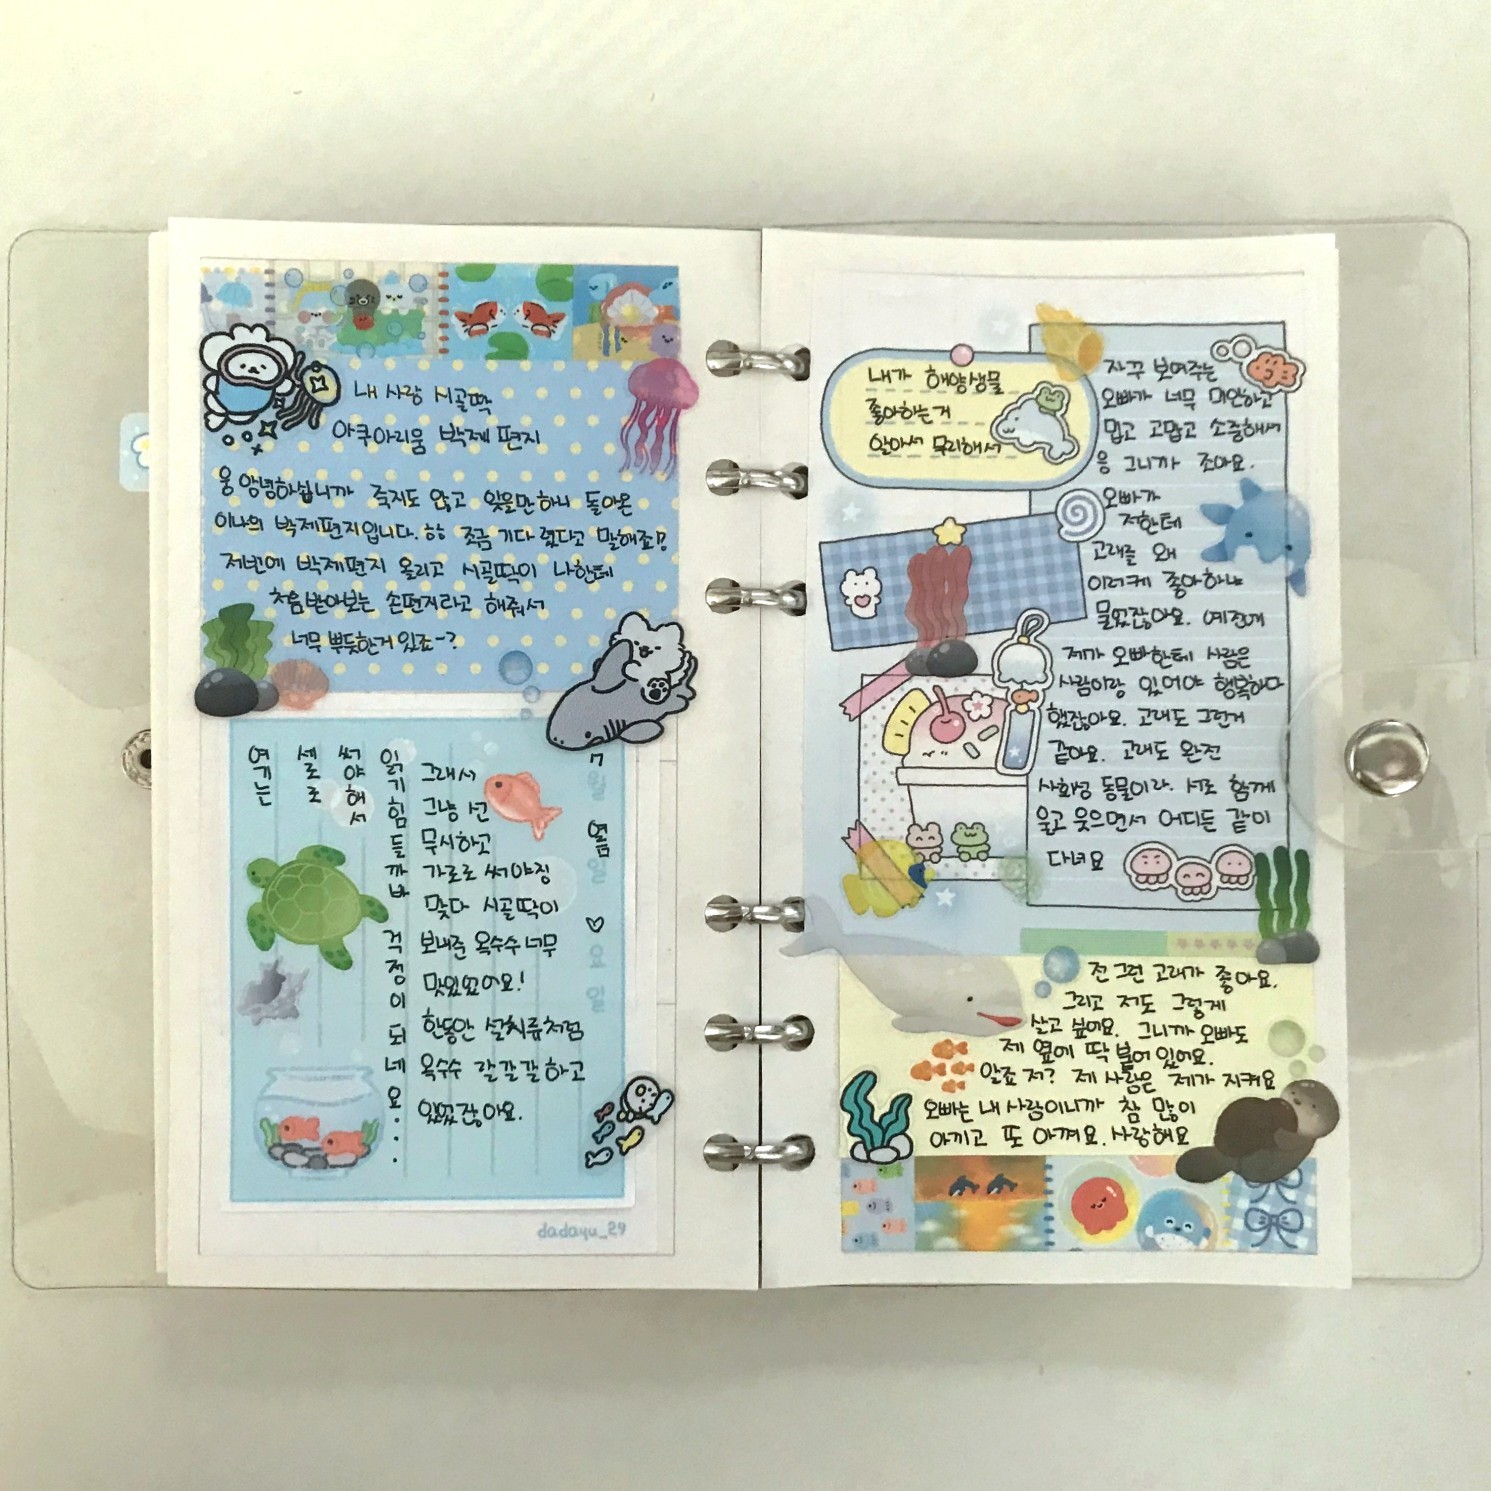 내 사랑 시골딱
아쿠아리움 박제 편지
웅 안녕하십니까 죽지도 않고 잊을만 하니 돌아온
이나의 박제편지입니다. ㅎㅎ 조금 기다렸다고 말해죠!?
저번에 박제편지 올리고 시골딱이 나한테
처음 받아보는 손편지라고 해줘서
너무 뿌듯한거 있죠~?
여기는
세로로
써야해서
읽기 힘들까바 걱정이 되네요....
그래서
그냥 선
무시하고
가로로 써야징
맞다 시골딱이
보내준 옥수수 너무
맛있었어요!
한동안 설치류처럼
옥수수 갈갈갈 하고
있었잖아요.
7월 여름 ♡
dadayu_29
내가 해양생물
좋아하는거
알아서 무리해서
자꾸 보여주는
오빠가 너무 미안하고
밉고 고맙고 소중해서
응 그니까 조아요.
오빠가
저한테
고래를 왜
이러케 좋아하냐
물었잖아요. 예전에
제가 오빠한테 사람은
사람이랑 있어야 행복하다
했잖아요. 고래도 그런거
같아요. 고래도 완전
사회성 동물이라. 서로 함께
울고 웃으면서 어디든 같이
다녀요
전 그런 고래가 좋아요.
그리고 저도 그렇게
살고 싶어요. 그니까 오빠도
제 옆에 딱 붙어 있어요.
알죠 저? 제 사람은 제가 지켜요
오빠는 내 사람이니까 참 많이
아끼고 또 아껴요. 사랑해요